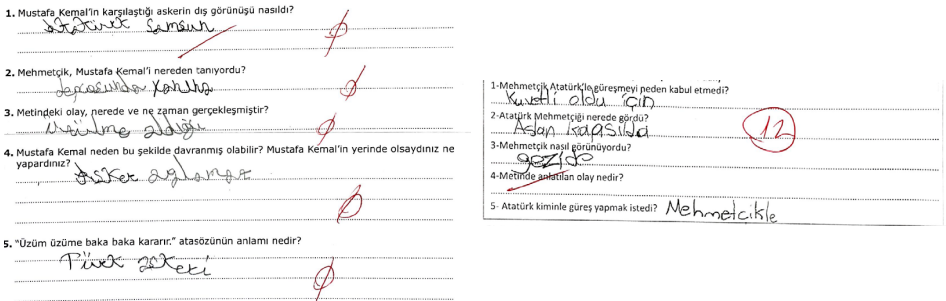 1. Mustafa Kemal'in karşılaştığı askerin dış görünüşü nasıldı?
Atatürk Samsun
2. Mehmetçik, Mustafa Kemal'i nereden tanıyordu?
3. Metindeki olay, nerede ve ne zaman gerçekleşmiştir?
4. Mustafa Kemal neden bu şekilde davranmış olabilir? Mustafa Kemal'in yerinde olsaydınız ne
yapardınız?
Asker ağlamaz
5. "Üzüm üzüme baka baka kararır." atasözünün anlamı nedir?
Türk askeri
1-Mehmetçik Atatürk'le güreşmeyi neden kabul etmedi?
Kuvetli oldu için
2-Atatürk Mehmetçiği nerede gördü?
Aslan kapısıda
3-Mehmetçik nasıl görünüyordu?
12
4-Metinde anlatılan olay nedir?
5- Atatürk kiminle güreş yapmak istedi? Mehmetcikle